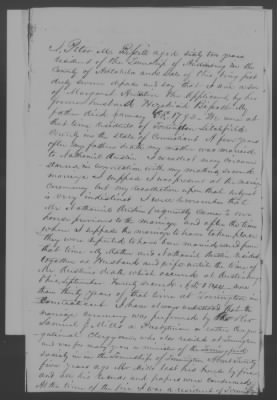 I, Peter M. aged sixty two years
resident of the Township of in the
County of Ashtabula and State of Ohio, being first
duly sworn depose and say that I am a son
of Margaret Austin the applicant, by her
former husband Hezekiah My
father died January 1793. We were at
that time residents of Torrington Litchfield
County in the state of Connecticut. A few years
after my father's death my mother was married
to Nathaniel Austin. I recollect many
in connection with my mother's second
marriage. I suppose I was present at the marriage
ceremony but my recollection upon that subject
is very indistinct. I well remember that
Mr Nathaniel Austin frequently came to our
house previous to the marriage, and after the time
when I suppose the marriage to have taken place
they were reputed to have been married and from
that time My Mother and Nathaniel Austin resided
together as husband and wife until the time of
Mr Austin's death which occurred at
Ohio,
than thirty years of that time at Torrington in
Connecticut. I have always understood that the
marriage ceremony was performed by the Rev
Samuel J. Mills a Presbyterian or
Clergyman, who also resided at Torringford
and was for many years minister of the Torringford
society in in the Township of Torrington. About twenty
five years ago Mr Mills lost his house by fire
and all his records and papers were consumed.
At the time of the fire I was a resident of